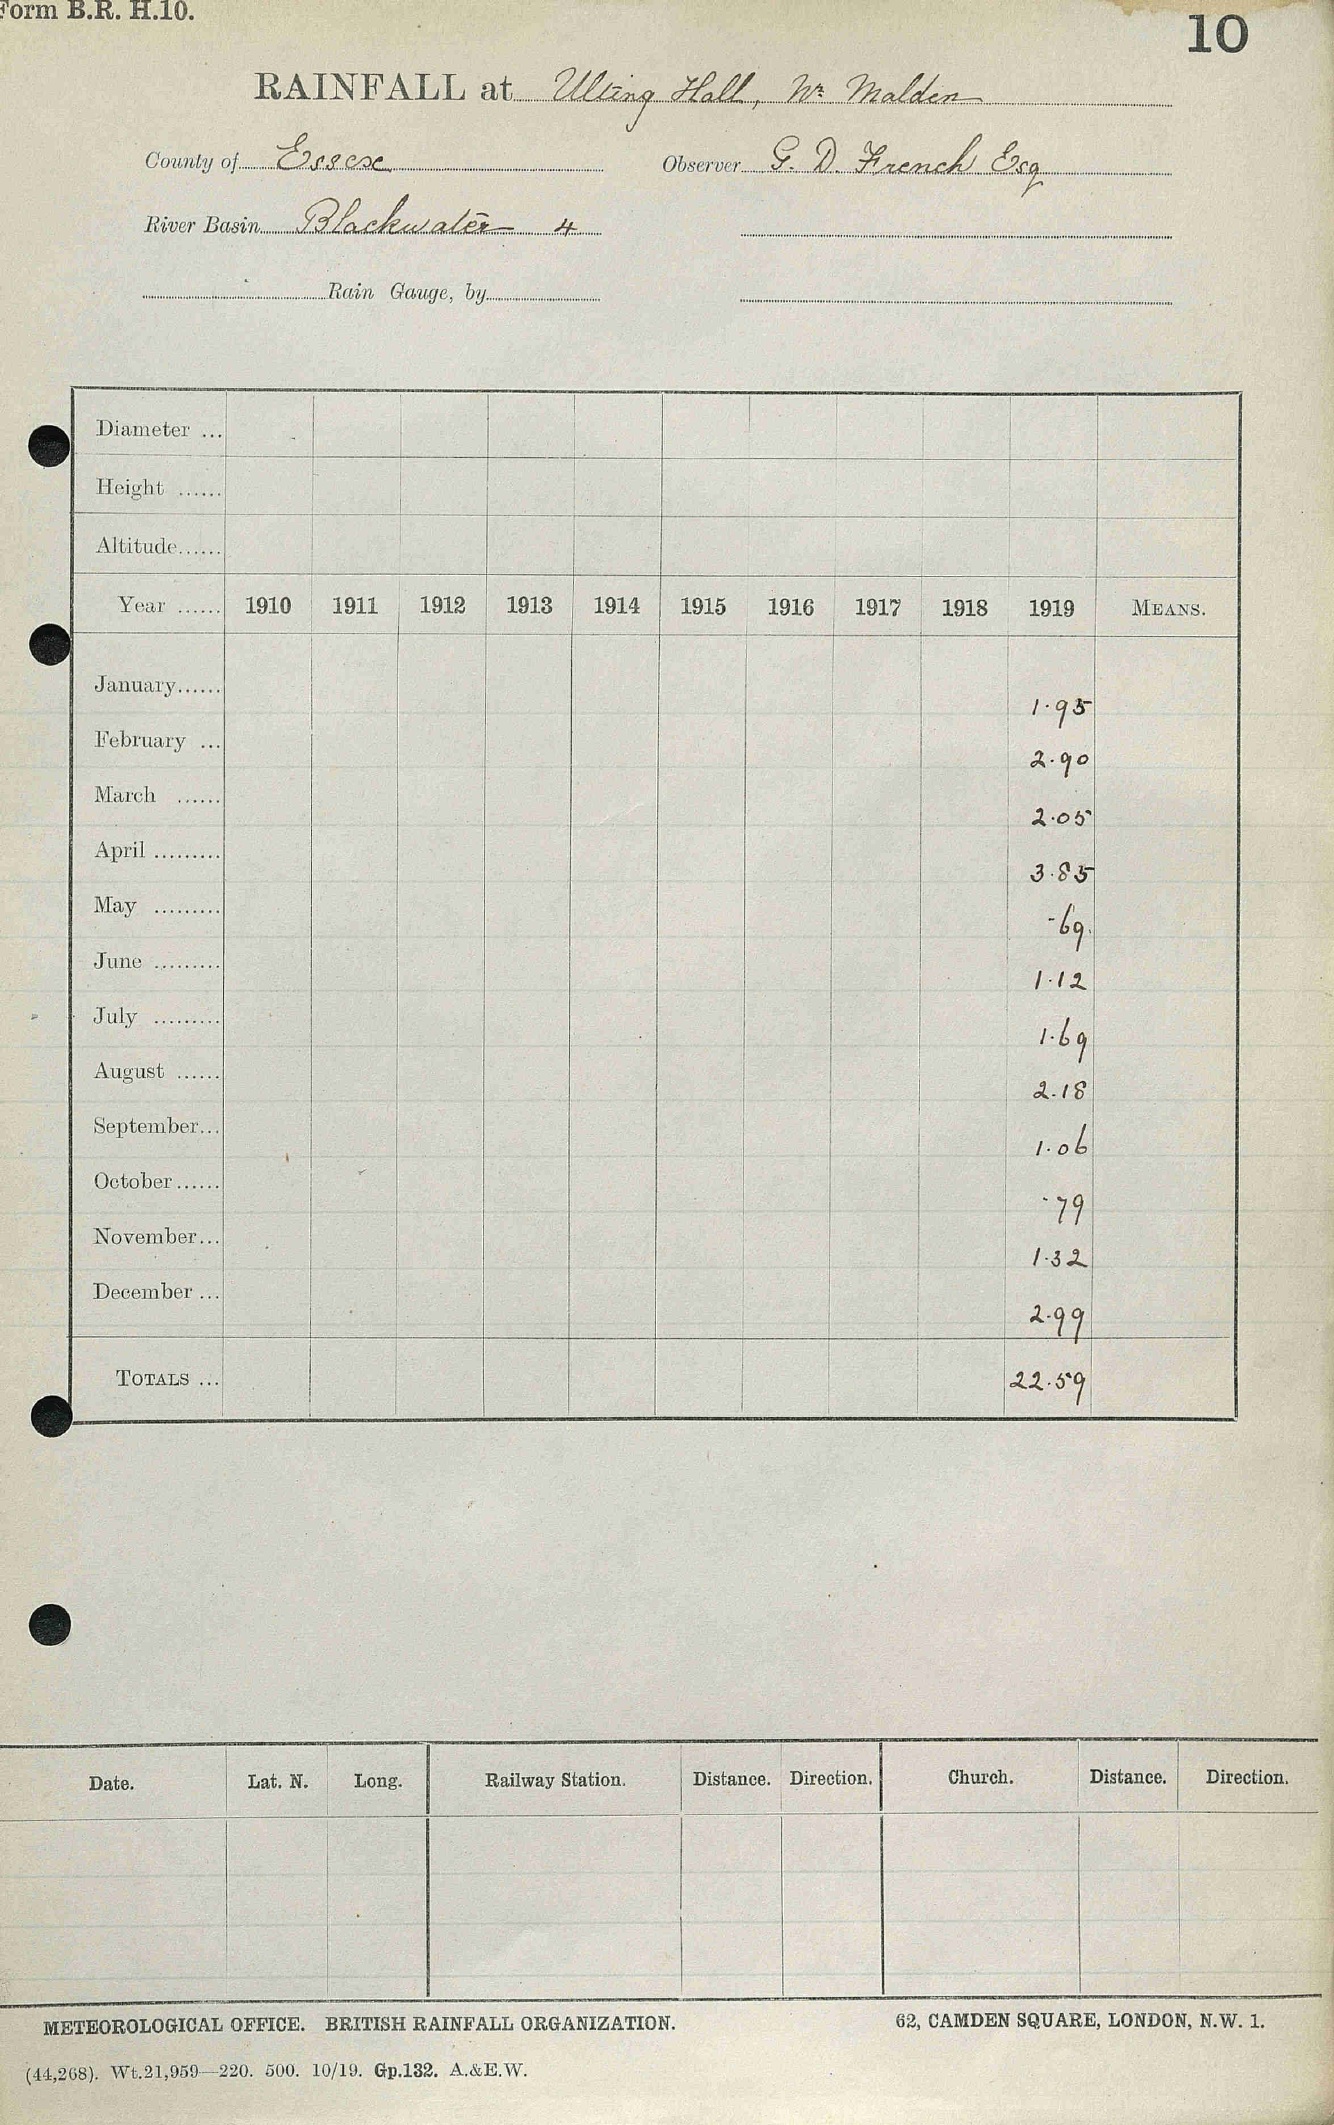 Form B.R. H.10.
10
RAINFALL at Ulting Hall, Nr Malden
County of Essex Observer G. D. French Esq
River Basin Blackwater 4
Rain Gauge, by
Diameter ...
Height ......
Altitude......
Year ...... 1910 1911 1912 1913 1914 1915 1916 1917 1918 1919 MEANS.
January...... 1.95
February ... 2.90
March ...... 2.05
April ......... 3.85
May ......... .69
June ......... 1.12
July ......... 1.69
August ...... 2.18
September... 1.06
October...... .79
November... 1.32
December ... 2.99
TOTALS ... 22.59
Date. Lat. N. Long. Railway Station. Distance. Direction. Church. Distance. Direction.
METEOROLOGICAL OFFICE. BRITISH RAINFALL ORGANIZATION. 62, CAMDEN SQUARE, LONDON, N.W. 1.
(44,268). Wt.21,959—220. 500. 10/19. Gp.132. A.&E.W.